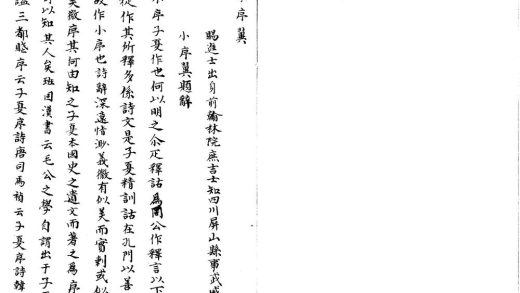 序翼
賜進士出身前翰林院庶吉士知四川屏山縣事武威
小序翼題辭
小序子夏作也何以明之尒疋釋詁爲周公作釋言以下
從作其所釋多係詩文是子夏精訓詁在孔門以善
故作小序也詩辭深遠情渺義微有似美而實刺或似
矣微序其何由知之子夏本國史之遺文而著之爲序
可以知其人矣班固漢書云毛公之學自謂出于子
謐三都賦序云子夏序詩唐司馬禎云子夏序詩韓